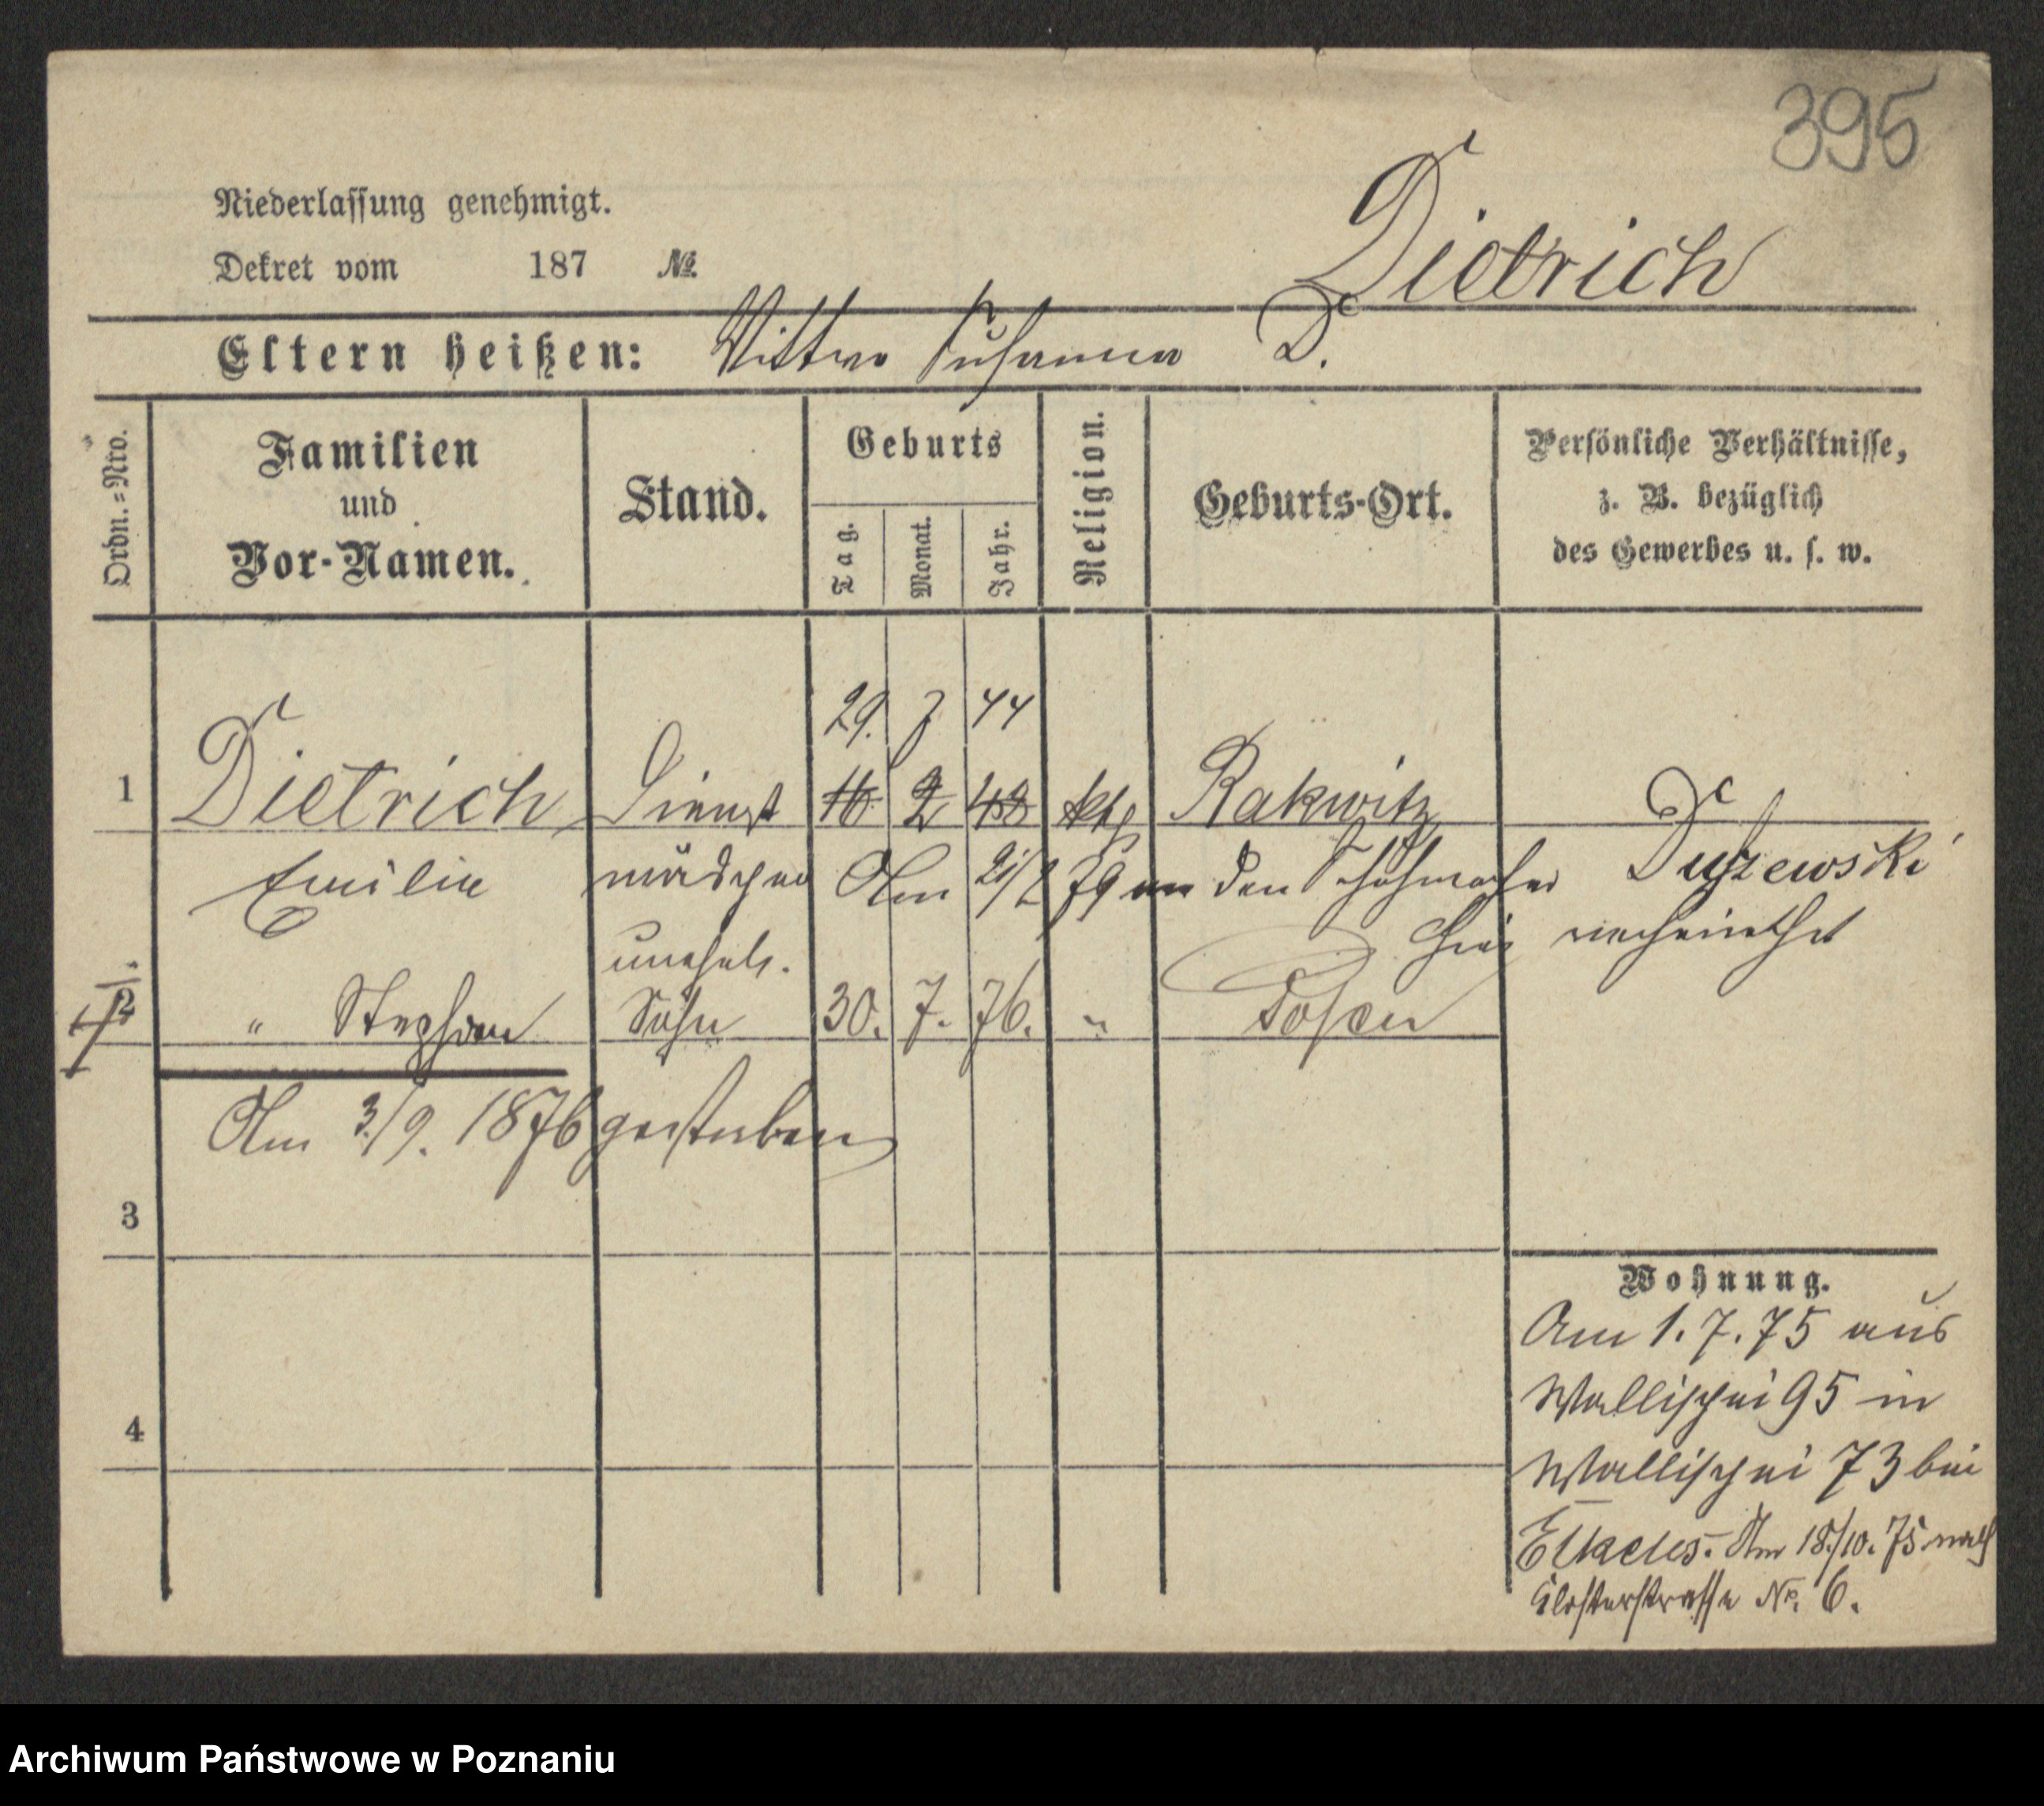 395
Niederlassung genehmigt.
Dekret vom 187 №
Dietrich
Eltern heißen: Wittwe Susanna D.
Ordn.=Nro.
Familien und Vor-Namen.
Stand.
Geburts
Tag. Monat. Jahr.
Religion.
Geburts-Ort.
Persönliche Verhältnisse,
z. B. bezüglich
des Gewerbes u. s. w.
29. 7 44
1 Dietrich Dienst 16. 2 48 kth Rakwitz
Emilie mädchen Am 21/2 79 an den Schuhmacher Duszewski
hier verheirathet
unehel.
2 " Stephan Sohn 30. 7. 76. " Posen
Am 3./9. 1876 gestorben
3
4
Wohnung.
Am 1. 7. 75 aus
Wallischei 95 in
Wallischei 73 bei
Elkeles. Am 18./10. 75 nach
Klosterstrasse №. 6.
Archiwum Państwowe w Poznaniu